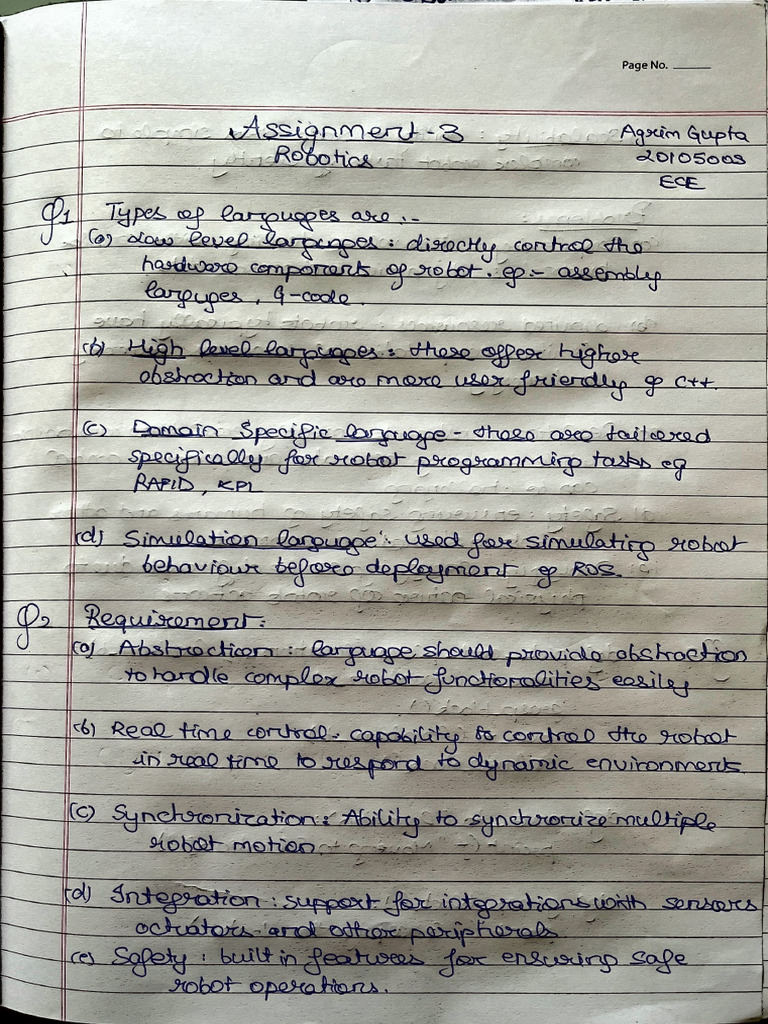 Page No.
Assignment - 3
Agrim Gupta
Robotics
20105003
ECE
Q1 Types of languages are :-
(a) Low level languages : directly control the
hardware components of robot. eg :- assembly
languges, G-code.
(b) High level languages : these offer higher
abstraction and are more user friendly eg C++.
(c) Domain Specific language - these are tailored
specifically for robot programming tasks eg
RAPID, KPL
(d) Simulation language : used for simulating robot
behaviour before deployment eg ROS.
Q2 Requirement :
(a) Abstraction : language should provide abstraction
to handle complex robot functionalities easily
(b) Real time control : capability to control the robot
in real time to respond to dynamic environments.
(c) Synchronization : Ability to synchronize multiple
robot motion.
(d) Integration : support for integrations with sensors
actuators and other peripherals
(e) Safety : built in features for ensuring safe
robot operations.